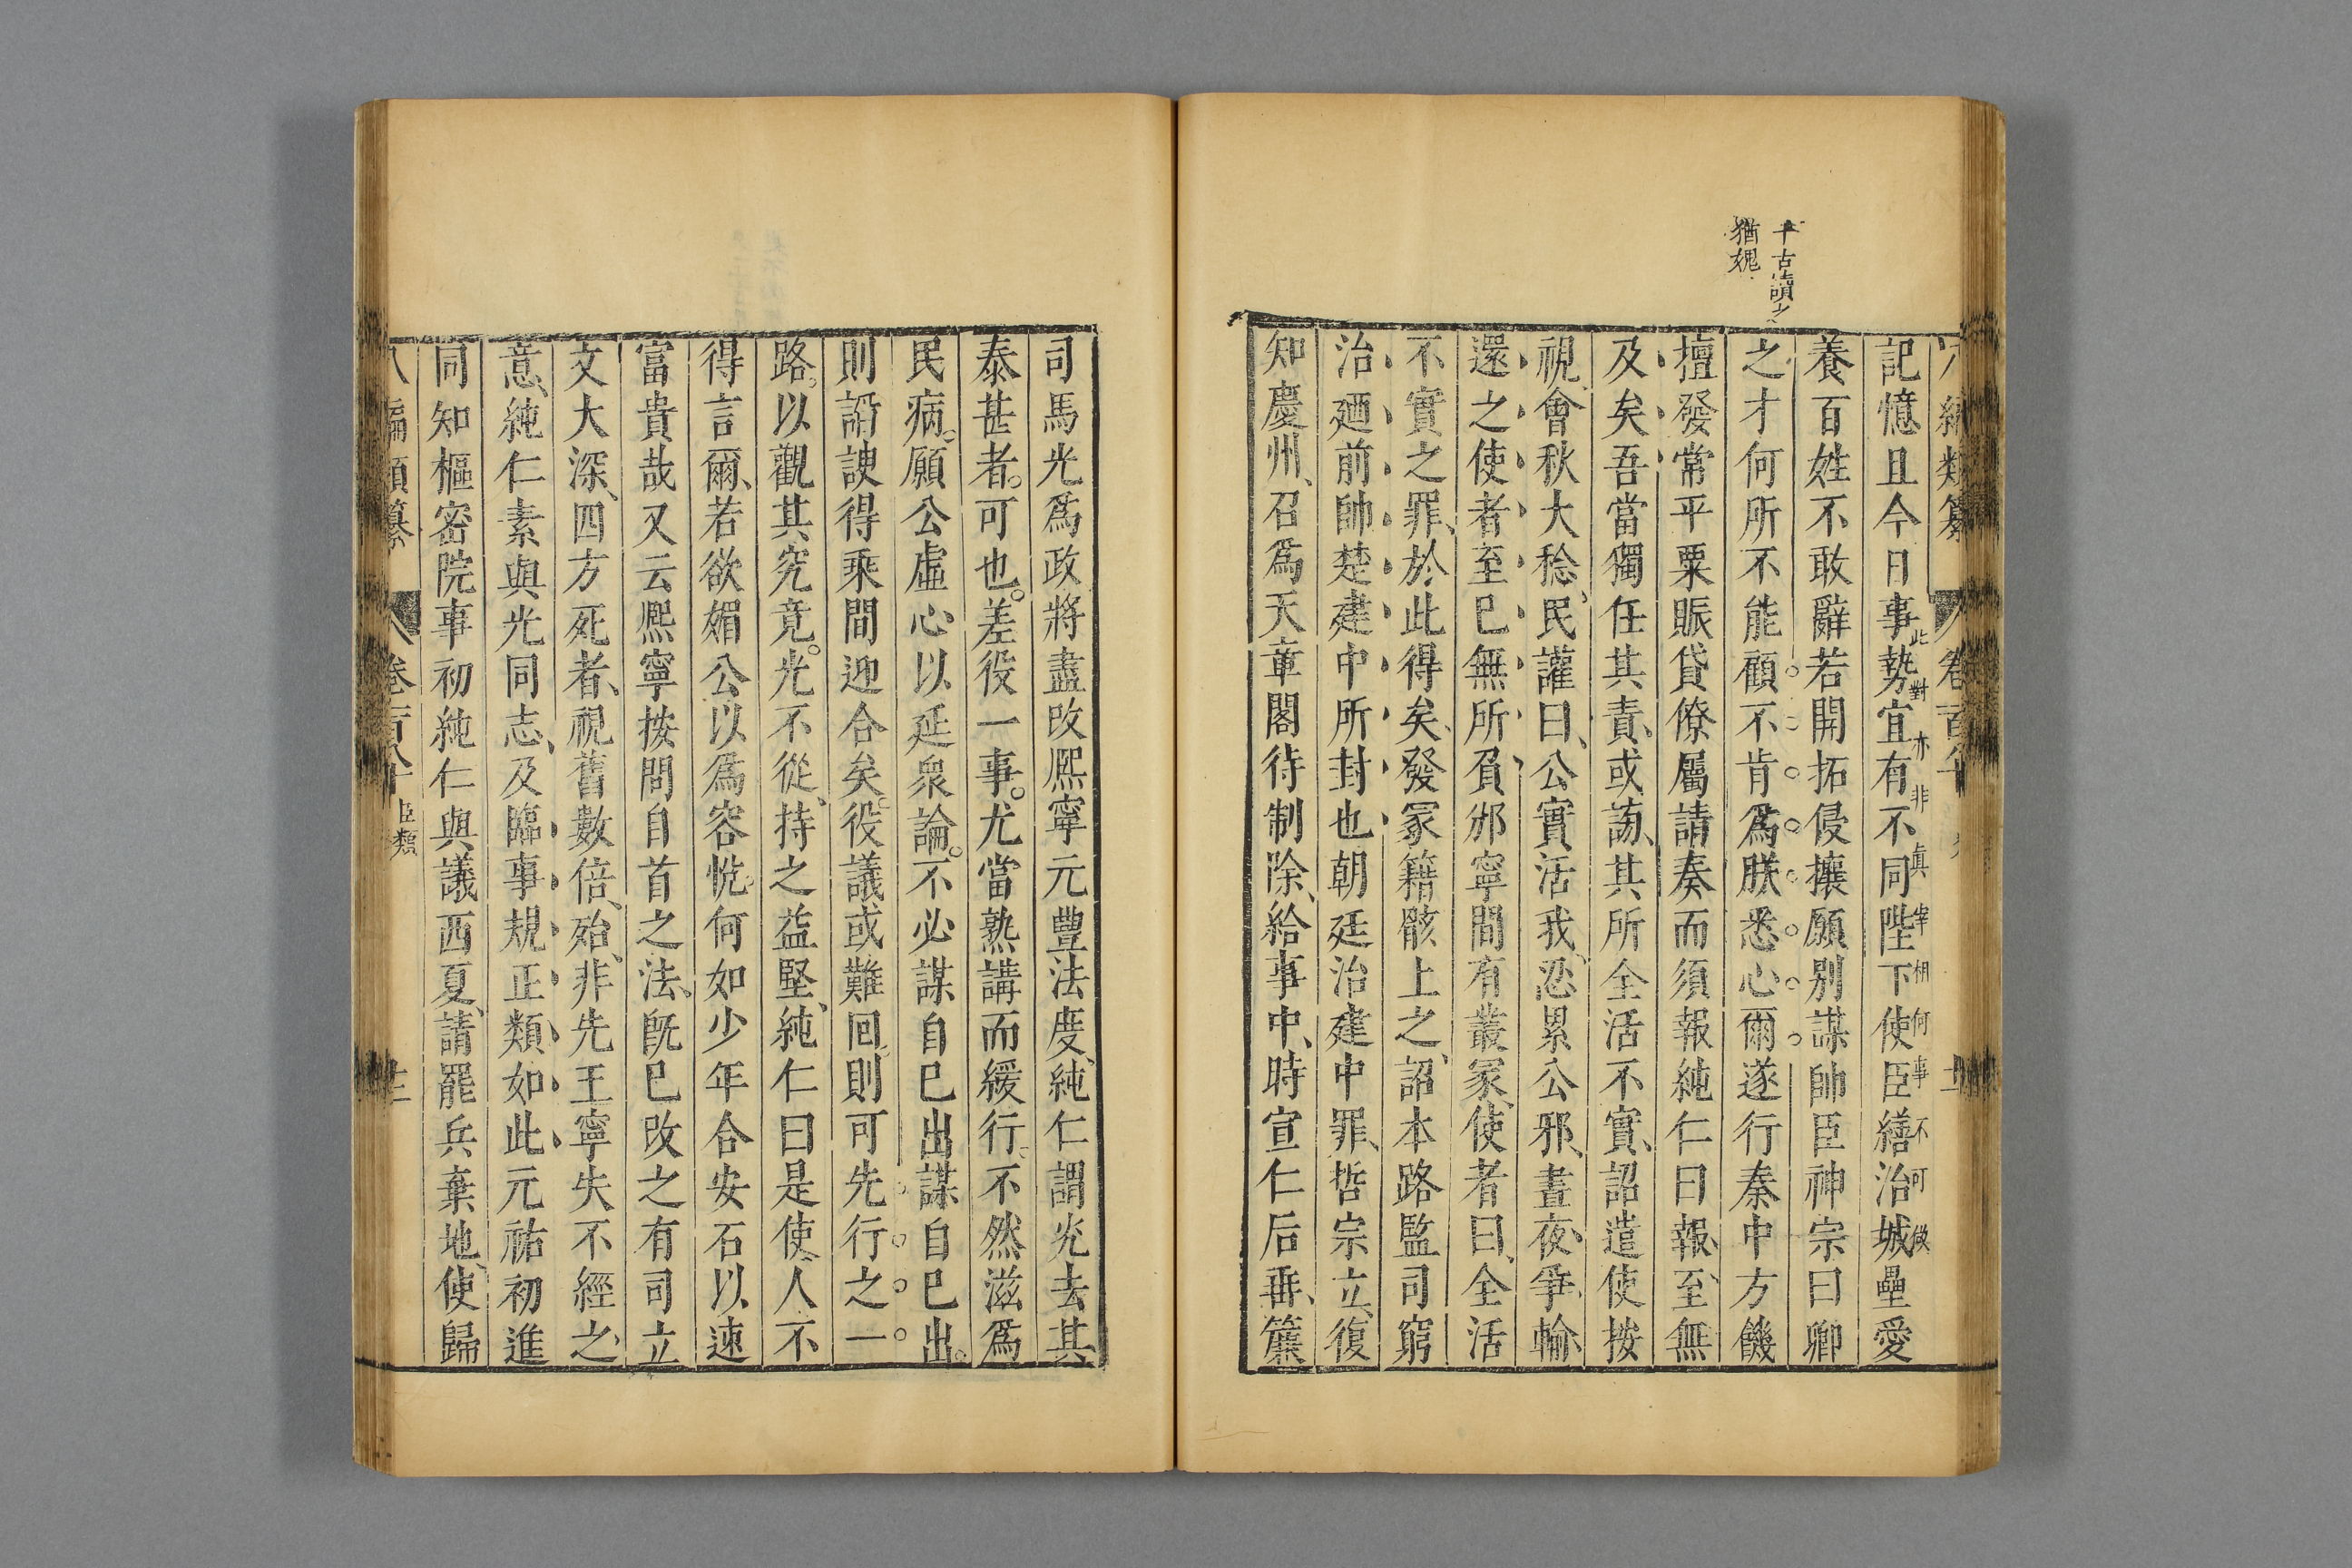 千古讀之
猶媿
八編類纂
卷百八十
記憶且今日事勢宜有不同陛下使臣繕治城壘愛
此對亦非眞宰相何事不可做
養百姓不敢辭若開拓侵攘願別謀帥臣神宗曰卿
之才何所不能顧不肯爲朕悉心爾遂行秦中方饑
擅發常平粟賑貸僚屬請奏而須報純仁曰報至無
及矣吾當獨任其責或謗其所全活不實詔遣使按
視會秋大稔民讙曰公實活我忍累公邪晝夜爭輸
還之使者至已無所負邠寧間有叢冢使者曰全活
不實之罪於此得矣發冢籍骸上之詔本路監司窮
治廼前帥楚建中所封也朝廷治建中罪哲宗立復
知慶州召爲天章閣待制除給事中時宣仁后垂簾
司馬光爲政將盡改熈寧元豐法度純仁謂光去其
泰甚者可也差役一事尤當熟講而緩行不然滋爲
民病願公虛心以延衆論不必謀自已出謀自已出
則諂諛得乘間迎合矣役議或難回則可先行之一
路以觀其究竟光不從持之益堅純仁曰是使人不
得言爾若欲媚公以爲容悅何如少年合安石以速
富貴哉又云熈寧按問自首之法旣已改之有司立
文大深四方死者視舊數倍殆非先王寧失不經之
意純仁素與光同志及臨事規正類如此元祐初進
同知樞密院事初純仁與議西夏請罷兵棄地使歸
八編類纂
卷一百八十
臣類
十二